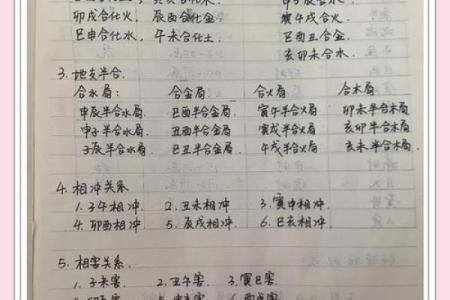 卯戌合化火，辰酉合化金，寅午戌合火。
巳申合化水，午未合化土，巳酉丑合金。
亥卯未合木。
3. 地支半合.
合水局： 合金局 合火局 合木局
申辰半合水局 巳酉半合金局 寅午半合火局 卯未半合木局
申子半合水局 丑酉半合金局 寅戌半合火局 亥卯半合木局
子辰半合水局. 巳丑半合金局 午戌半合火局 亥未半合木局
4. 相冲关系
1. 子午相冲 2. 丑未相冲 3. 寅申相冲
4. 卯酉相冲 5. 辰戌相冲 6. 巳亥相冲
5. 相害关系.
1. 子未害. 2. 丑午害 3. 寅巳害